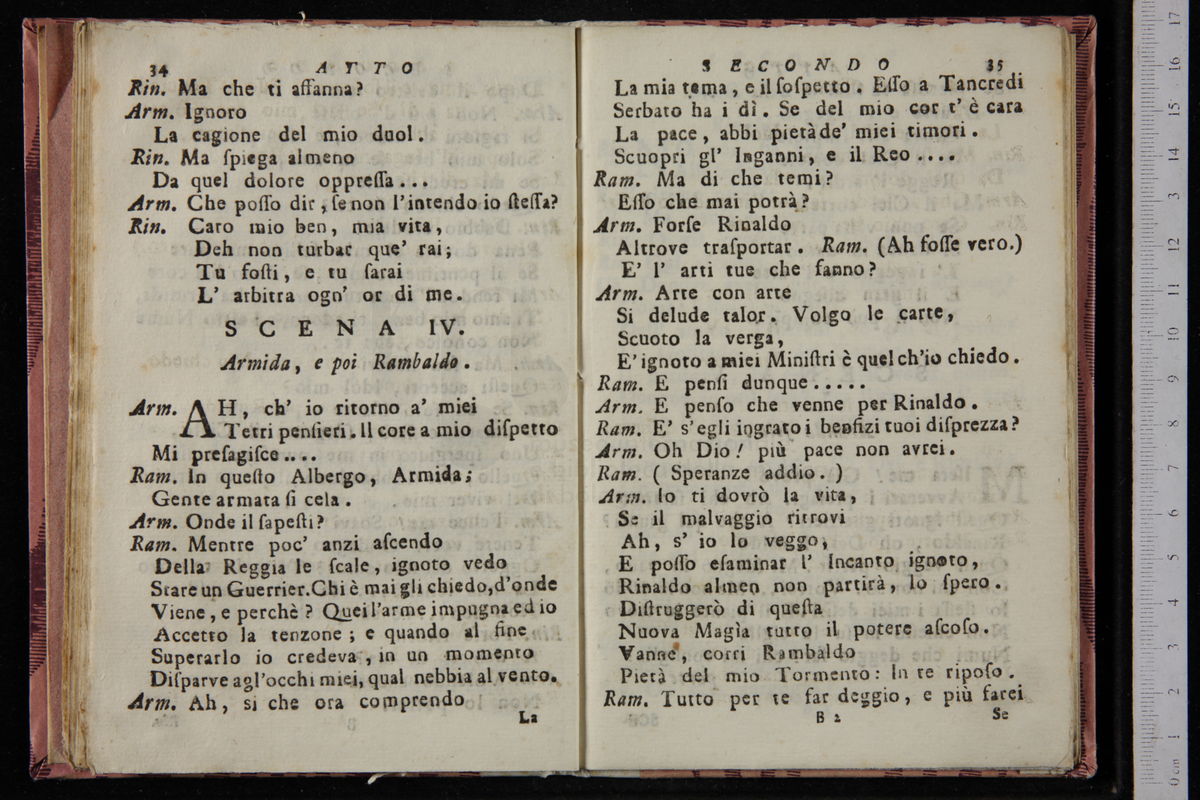 34 ATTO
Rin. Ma che ti affanna?
Arm. Ignoro
La cagione del mio duol.
Rin. Ma ſpiega almeno
Da quel dolore oppreſſa...
Arm. Che poſſo dir, ſe non l'intendo io ſteſſa?
Rin. Caro mio ben, mia vita,
Deh non turbar que' rai;
Tu foſti, e tu ſarai
L' arbitra ogn' or di me.
SCENA IV.
Armida, e poi Rambaldo.
Arm. AH, ch' io ritorno a' miei
Tetri penſieri. Il core a mio diſpetto
Mi preſagiſce....
Ram. In queſto Albergo, Armida;
Gente armata ſi cela.
Arm. Onde il ſapeſti?
Ram. Mentre poc' anzi aſcendo
Della Reggia le ſcale, ignoto vedo
Stare un Guerrier. Chi è mai gli chiedo, d'onde
Viene, e perchè? Quei l'arme impugna ed io
Accetto la tenzone; e quando al fine
Superarlo io credeva, in un momento
Diſparve agl'occhi miei, qual nebbia al vento.
Arm. Ah, sì che ora comprendo
La
SECONDO 35
La mia tema, e il ſoſpetto. Eſſo a Tancredi
Serbato ha i dì. Se del mio cor t' è cara
La pace, abbi pietà de' miei timori.
Scuopri gl' Inganni, e il Reo....
Ram. Ma di che temi?
Eſſo che mai potrà?
Arm. Forſe Rinaldo
Altrove traſportar. Ram. (Ah foſſe vero.)
E' l' arti tue che fanno?
Arm. Arte con arte
Si delude talor. Volgo le carte,
Scuoto la verga,
E' ignoto a miei Miniſtri è quel ch'io chiedo.
Ram. E penſi dunque.....
Arm. E penſo che venne per Rinaldo.
Ram. E' s'egli ingrato i benfizi tuoi diſprezza?
Arm. Oh Dio! più pace non avrei.
Ram. (Speranze addio.)
Arm. Io ti dovrò la vita,
Se il malvaggio ritrovi
Ah, s' io lo veggo,
E poſſo eſaminar l' Incanto ignoto,
Rinaldo almen non partirà, lo ſpero.
Diſtruggerò di queſta
Nuova Magìa tutto il potere aſcoſo.
Vanne, corri Rambaldo
Pietà del mio Tormento: In te ripoſo.
Ram. Tutto per te far deggio, e più farei
B 2 Se
17
16
15
14
13
12
11
10
9
8
7
6
5
4
3
2
1
0 cm